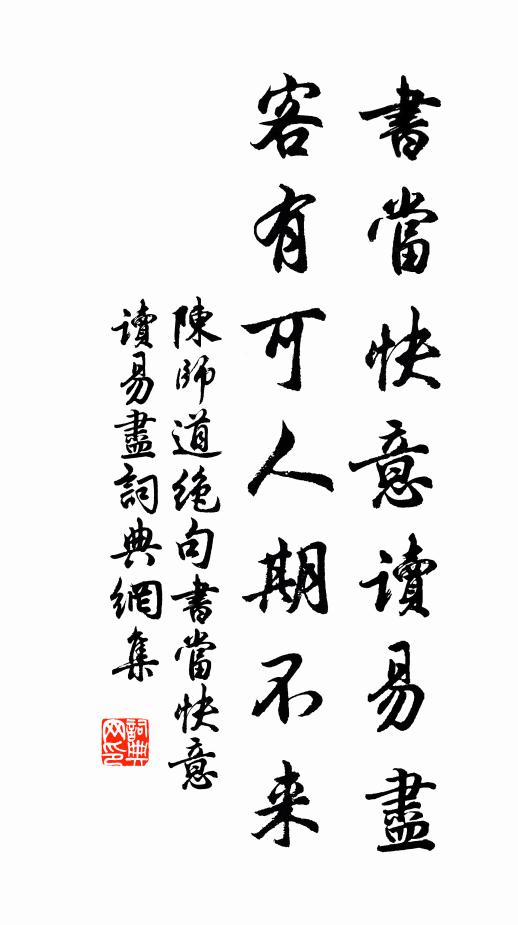 書當快意讀易盡
客有可人期不来
陳師道絶句書當快意
讀易盡詞典網集
詞典網印